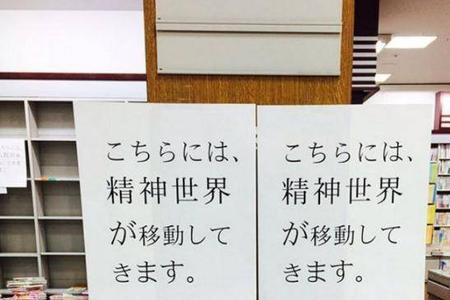 こちらには、
精神世界
が移動して
きます。
こちらには、
精神世界
が移動して
きます。